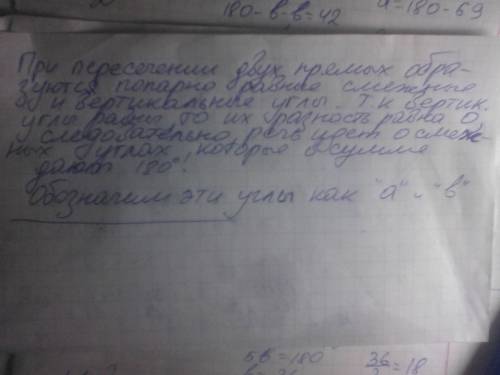 180-в-в=42
a=180-69
При пересечении двух прямых обра-
зуются попарно равные смежные
и вертикальные углы. Т.к вертик.
углы равны то их разность равна 0,
следовательно, речь идет о смеж-
ных углах, которые в сумме
дают 180°!
Обозначим эти углы как "a" и "в"
5в=180
36
= 18